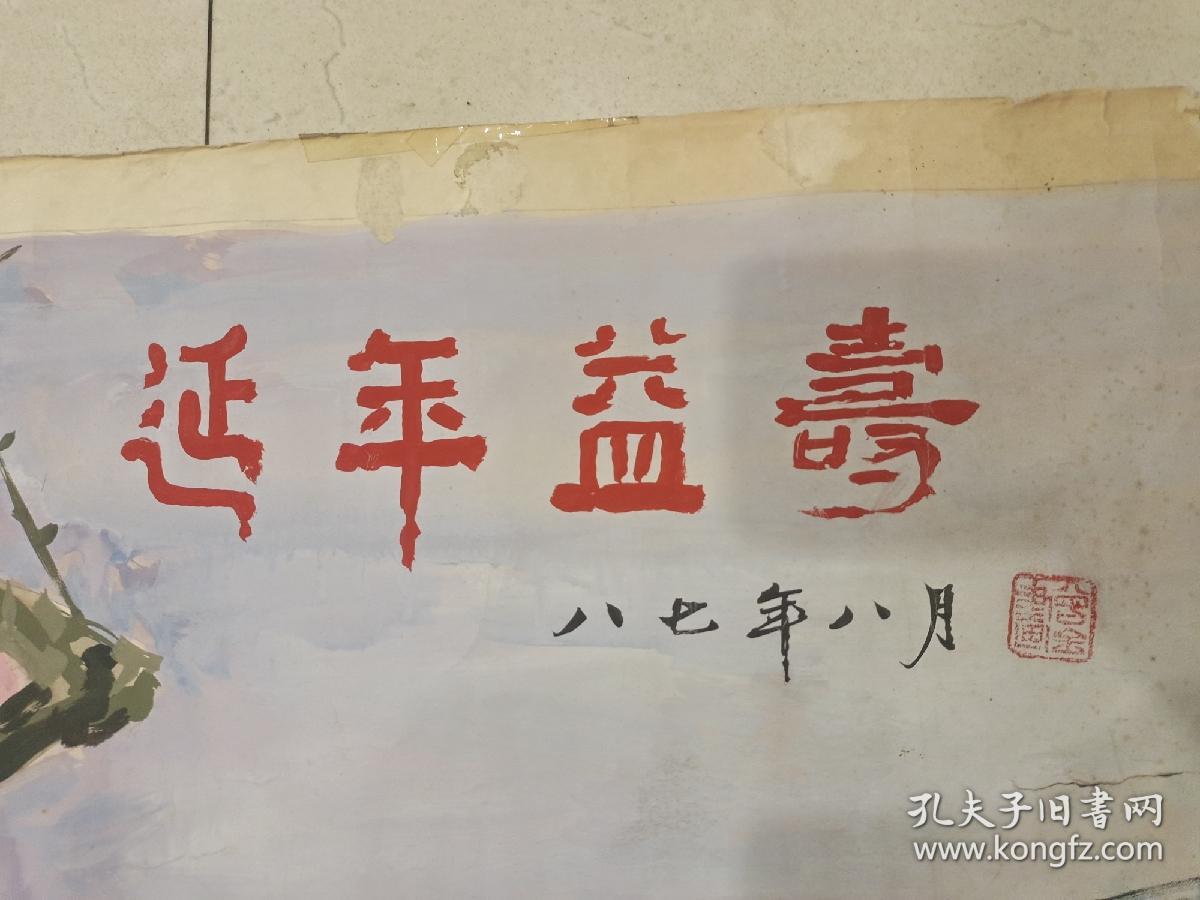 延年益壽
八七年八月
孔夫子旧書网
www.kongfz.com